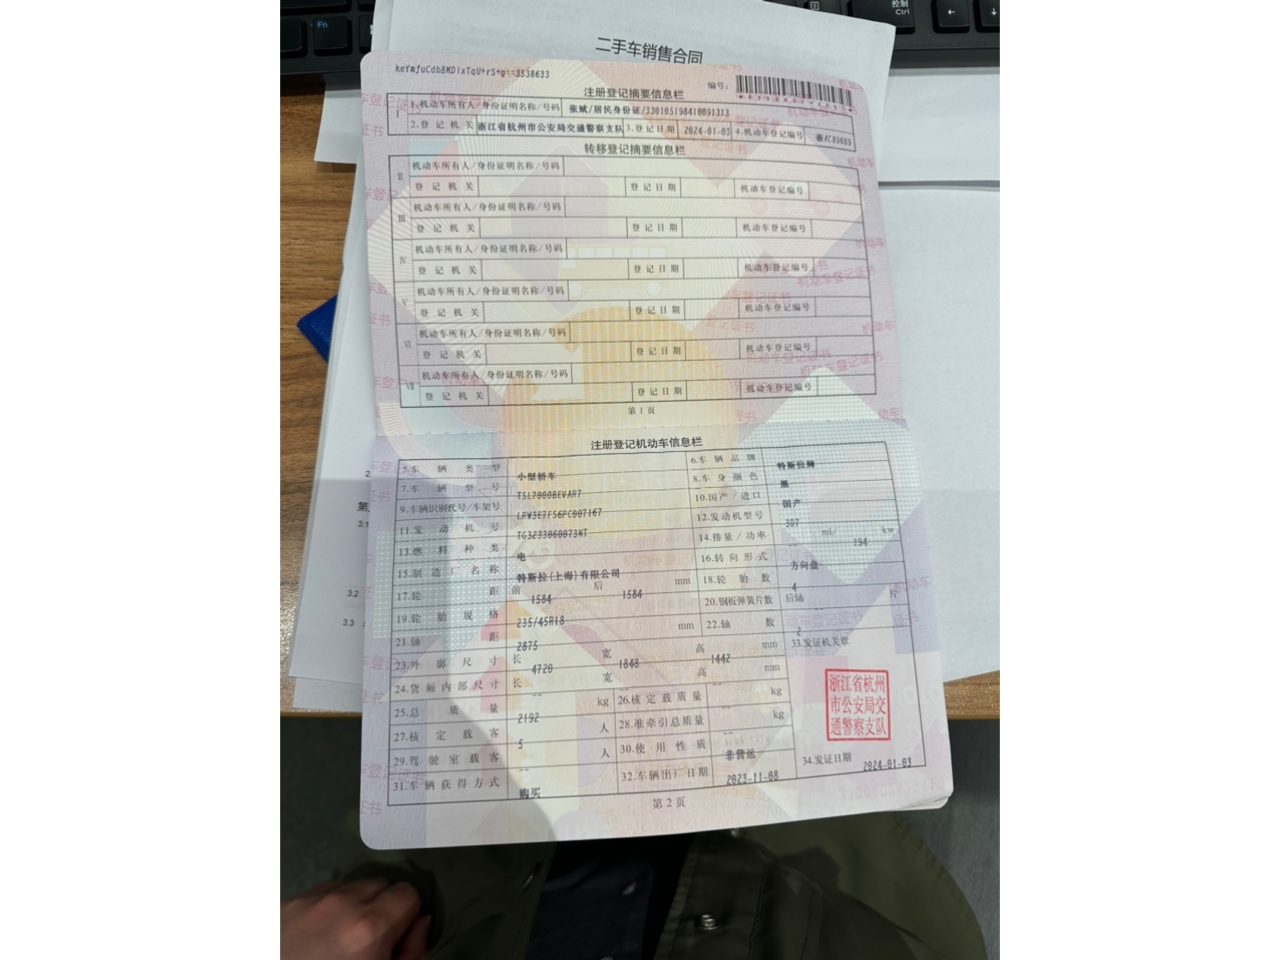 Fn
控制
Ctrl
二手车销售合同
keYmfuCdhBMDixTqU+rS+g==3538633
编号:
注册登记摘要信息栏
I 1.机动车所有人/身份证明名称/号码 张斌/居民身份证/330105198410091313
2.登记机关 浙江省杭州市公安局交通警察支队 3.登记日期 2024-01-03 4.机动车登记编号 浙AC89689
转移登记摘要信息栏
II 机动车所有人/身份证明名称/号码
登记机关 登记日期 机动车登记编号
III 机动车所有人/身份证明名称/号码
登记机关 登记日期 机动车登记编号
IV 机动车所有人/身份证明名称/号码
登记机关 登记日期 机动车登记编号
V 机动车所有人/身份证明名称/号码
登记机关 登记日期 机动车登记编号
VI 机动车所有人/身份证明名称/号码
登记机关 登记日期 机动车登记编号
VII 机动车所有人/身份证明名称/号码
登记机关 登记日期 机动车登记编号
第1页
注册登记机动车信息栏
5.车辆类型 小型轿车 6.车辆品牌 特斯拉牌
7.车辆型号 TSL7000BEVAR7 8.车身颜色 黑
9.车辆识别代号/车架号 LRW3E7FS6PC007167 10.国产/进口 国产
11.发动机号 TG3233060073NT 12.发动机型号 3D7
13.燃料种类 电 14.排量/功率 -- ml/ 194 kw
15.制造厂名称 特斯拉(上海)有限公司 16.转向形式 方向盘
17.轮距 前 1584 后 1584 mm 18.轮胎数 4
19.轮胎规格 235/45R18 20.钢板弹簧片数 后轴 -- 片
21.轴距 2875 mm 22.轴数 2
23.外廓尺寸 长 4720 宽 1848 高 1442 mm 33.发证机关章
24.货厢内部尺寸 长 -- 宽 -- 高 -- mm
25.总质量 2192 kg 26.核定载质量 -- kg
27.核定载客 5 人 28.准牵引总质量 -- kg
29.驾驶室载客 -- 人 30.使用性质 非营运
31.车辆获得方式 购买 32.车辆出厂日期 2023-11-08 34.发证日期 2024-01-03
浙江省杭州
市公安局交
通警察支队
第2页
3.1
3.2
3.3